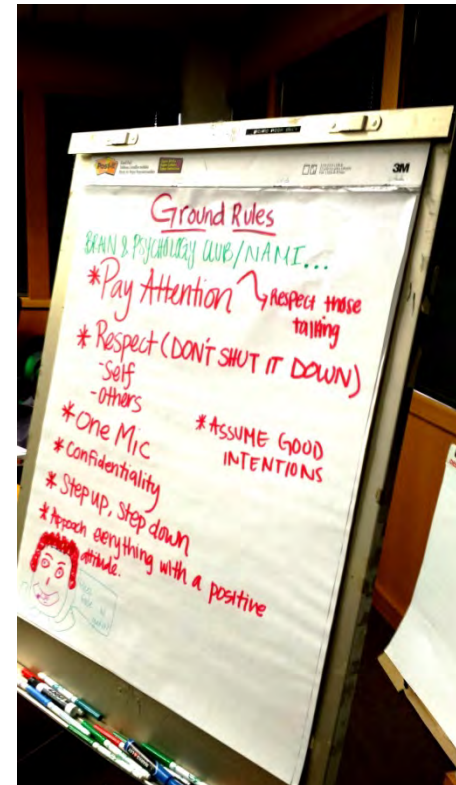 Post-it
3M
Ground Rules
BRAIN & PSYCHOLOGY CLUB/NAMI...
*Pay Attention
↳Respect those
talking
*Respect (DON'T SHUT IT DOWN)
-Self
-others
*One Mic
*ASSUME GOOD
INTENTIONS
*Confidentiality
*Step up, Step down
*Approach everything with a positive
attitude.